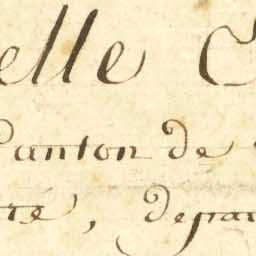 elle C
Canton de
re, depar